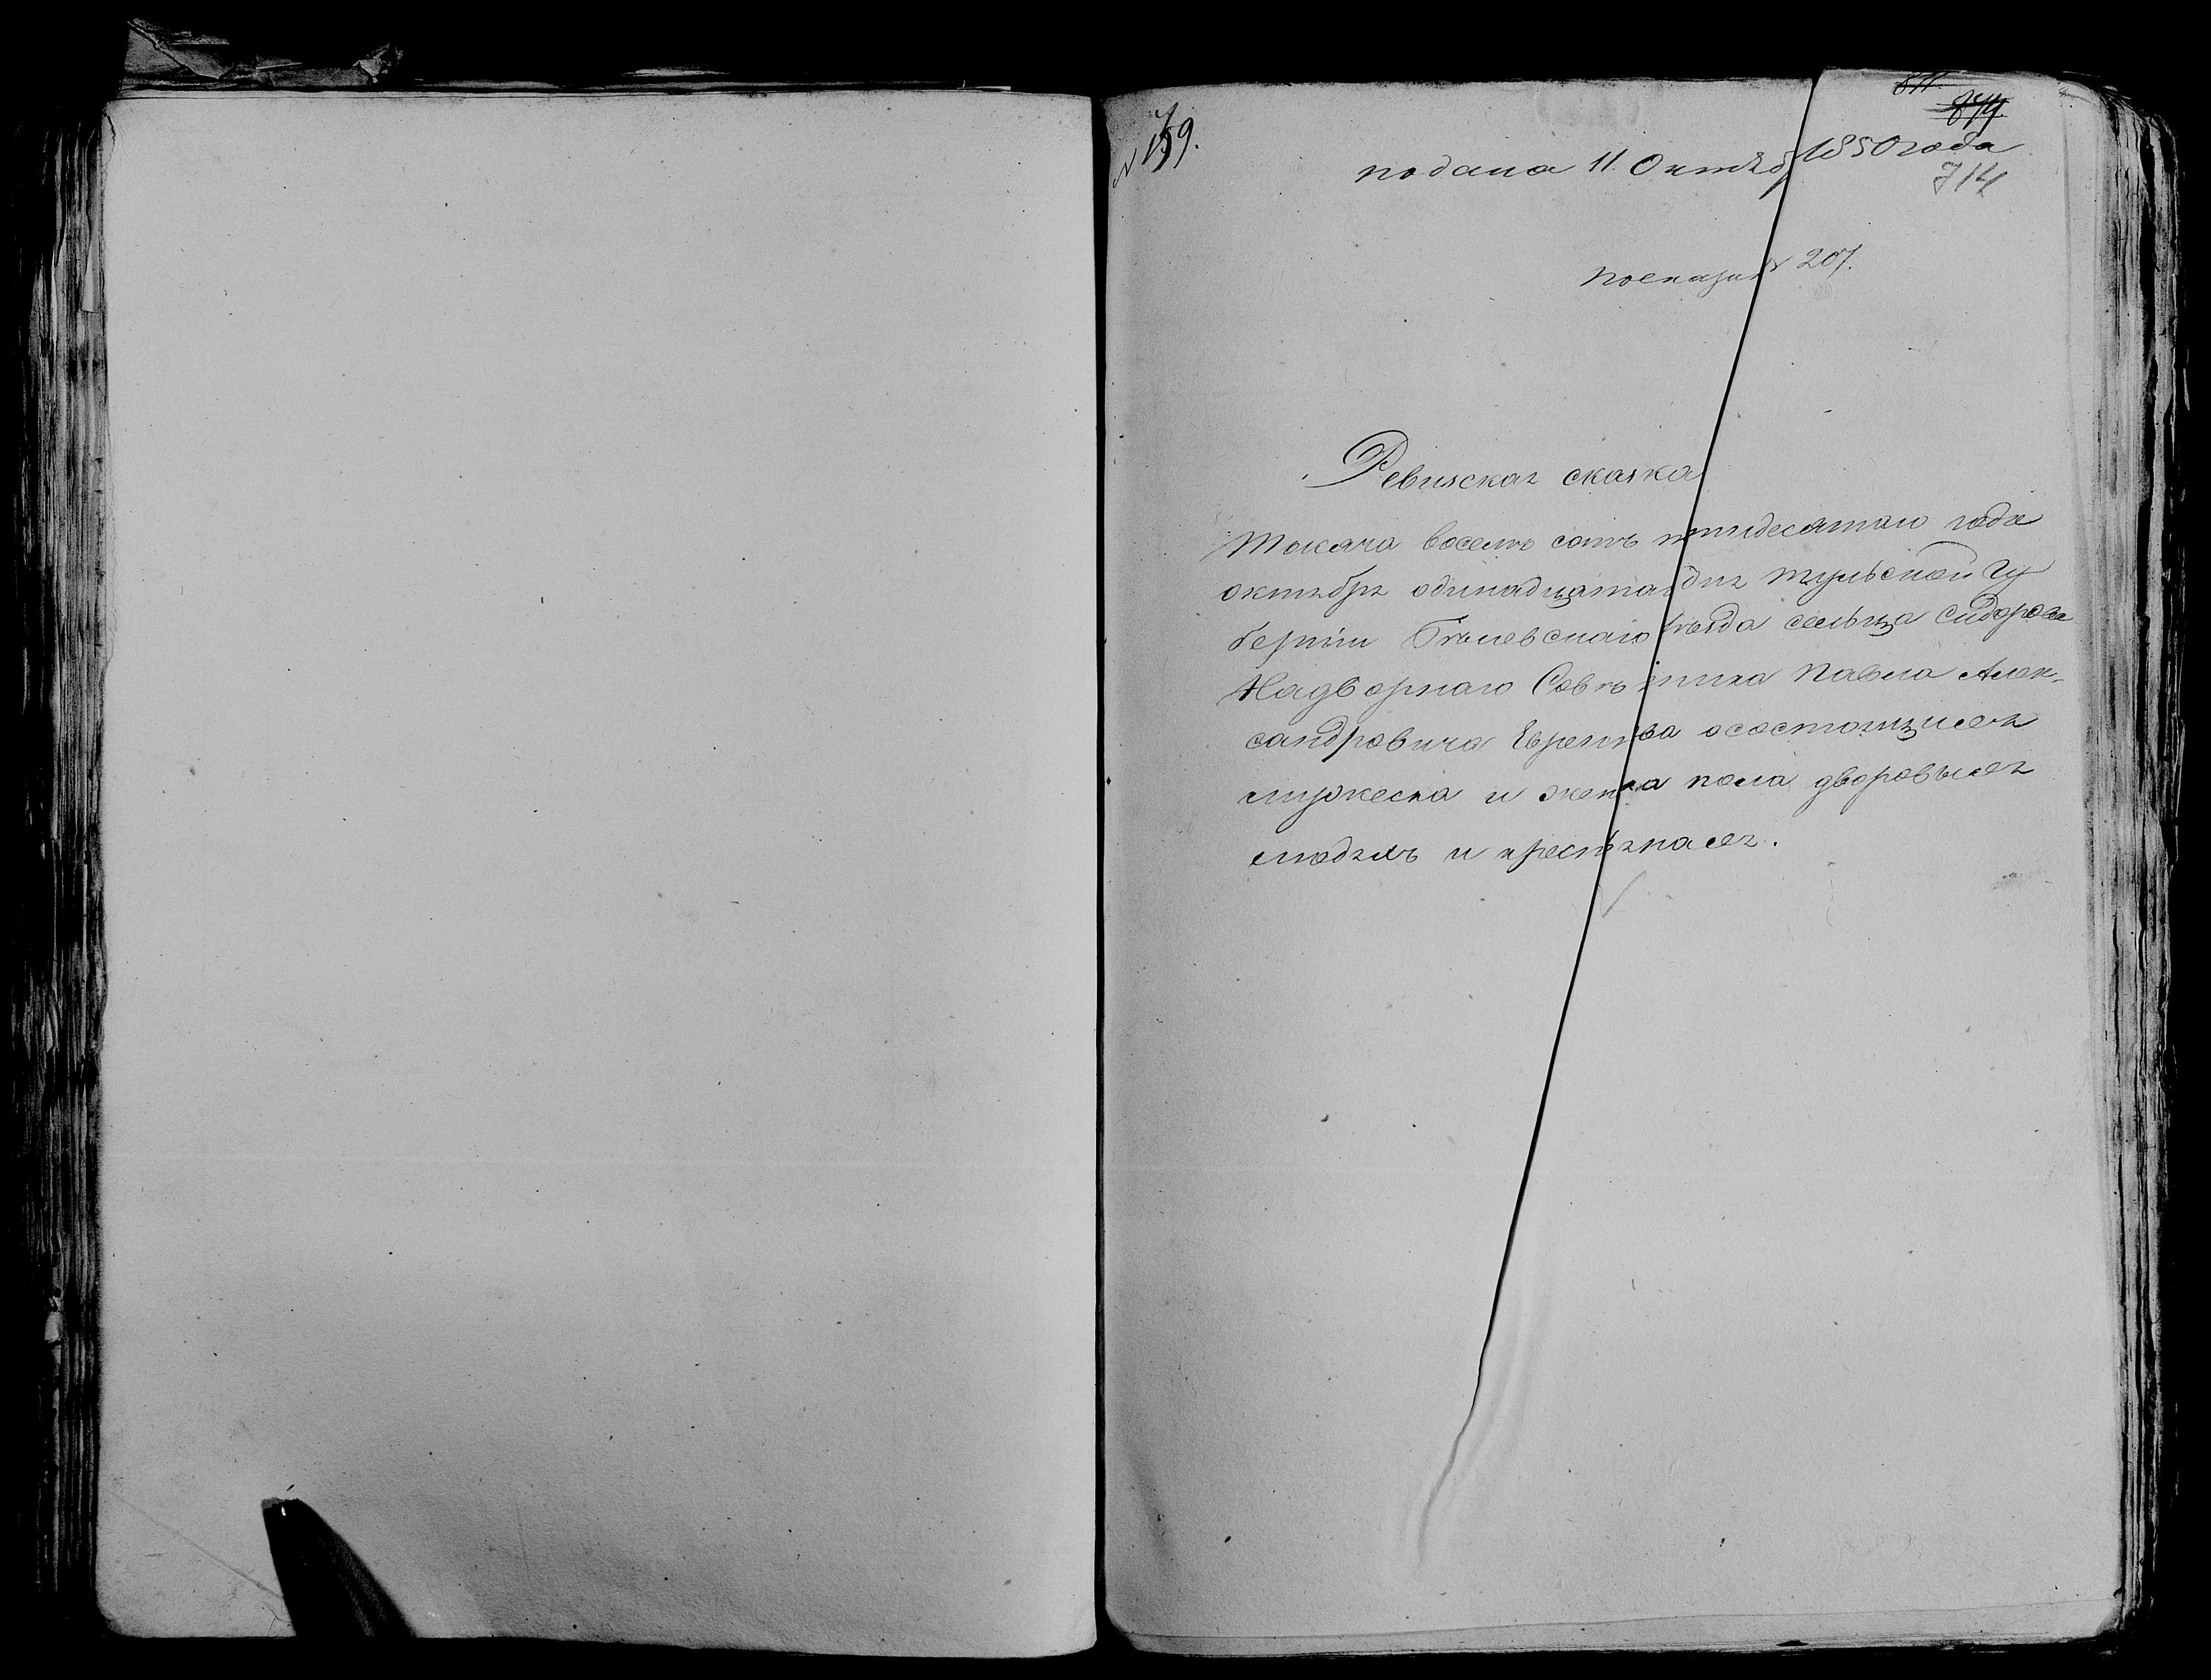 № 159.
874
подана 11. Октяб 1850 года
714
поенарал № 207.
Ревизская сказка
Тысяча восемь сотъ птидесятаго года
октября одинадцата дня Тульской Гу
берніи Бѣлевскаго уѣзда сельца Сидорова
Надворнаго Совѣтника Павла Алек-
сандровича Евреинова осостоящихъ
мужеска и женска пола дворовыхъ
людяхъ и крестьянахъ.